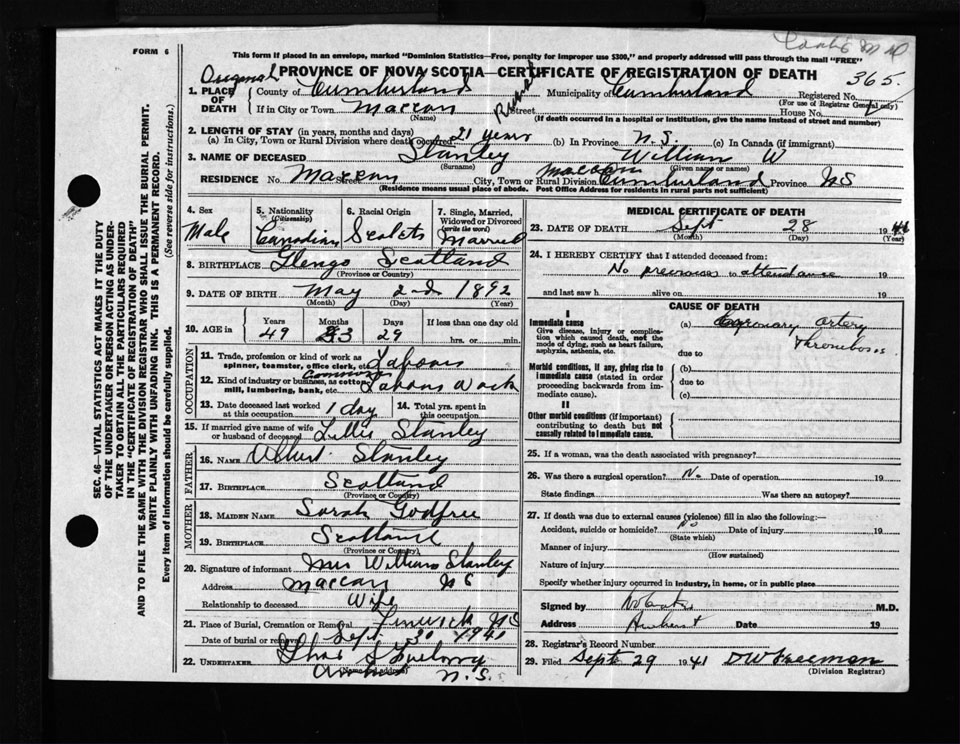 FORM 6
This form if placed in an envelope, marked "Dominion Statistics—Free, penalty for improper use $300," and properly addressed will pass through the mail "FREE"
Original
PROVINCE OF NOVA SCOTIA—CERTIFICATE OF REGISTRATION OF DEATH
365
1. PLACE OF DEATH
County of Cumberland Municipality of Cumberland Registered No.
(For use of Registrar General only)
If in City or Town Maccan Rural Street House No.
(Name) (If death occurred in a hospital or institution, give the name instead of street and number)
2. LENGTH OF STAY (in years, months and days)
(a) In City, Town or Rural Division where death occurred 21 years (b) In Province N.S. (c) In Canada (if immigrant)
3. NAME OF DECEASED Stanley William W
(Surname) (Given name or names)
RESIDENCE No. Maccan Street Maccan City, Town or Rural Division Cumberland Province N S
(Residence means usual place of abode. Post Office Address for residents in rural parts not sufficient)
4. Sex Male
5. Nationality (Citizenship) Canadian
6. Racial Origin
7. Single, Married, Widowed or Divorced (write the word) Married
8. BIRTHPLACE Scotland
(Province or Country)
9. DATE OF BIRTH May 2nd 1892
(Month) (Day) (Year)
10. AGE in Years Months Days If less than one day old
49 3 29 hrs. or min.
OCCUPATION
11. Trade, profession or kind of work as spinner, teamster, office clerk, etc.
12. Kind of industry or business, as cotton mill, lumbering, bank, etc. Common
13. Date deceased last worked at this occupation 1 day
14. Total yrs. spent in this occupation
15. If married give name of wife or husband of deceased Stanley
FATHER
16. NAME Albert Stanley
17. BIRTHPLACE Scotland
(Province or Country)
MOTHER
18. MAIDEN NAME Sarah Godfree
19. BIRTHPLACE Scotland
(Province or Country)
20. Signature of informant Mrs William Stanley
Address Maccan N S
Relationship to deceased Wife
21. Place of Burial, Cremation or Removal Fenwick N S
Date of burial or removal Sept 30 1941
22. UNDERTAKER
(Name and address) N.S.
MEDICAL CERTIFICATE OF DEATH
23. DATE OF DEATH Sept 28 1941
(Month) (Day) (Year)
24. I HEREBY CERTIFY that I attended deceased from:
No previous to attendance 19
and last saw h alive on 19
CAUSE OF DEATH
I
Immediate cause
Give disease, injury or complication which caused death, not the mode of dying, such as heart failure, asphyxia, asthenia, etc.
(a) Coronary artery Thrombosis
due to
Morbid conditions, if any, giving rise to immediate cause (stated in order proceeding backwards from immediate cause).
(b)
due to
(c)
II
Other morbid conditions (if important) contributing to death but not causally related to immediate cause.
25. If a woman, was the death associated with pregnancy?
26. Was there a surgical operation? No Date of operation 19
State findings Was there an autopsy?
27. If death was due to external causes (violence) fill in also the following:—
Accident, suicide or homicide? No Date of injury 19
(State which)
Manner of injury
(How sustained)
Nature of injury
Specify whether injury occurred in industry, in home, or in public place
Signed by M.D.
Address Amherst Date 19
28. Registrar's Record Number
29. Filed Sept 29 1941 D W Freeman
(Division Registrar)
SEC. 46—VITAL STATISTICS ACT MAKES IT THE DUTY
OF THE UNDERTAKER OR PERSON ACTING AS UNDER-
TAKER TO OBTAIN ALL THE PARTICULARS REQUIRED
IN THE "CERTIFICATE OF REGISTRATION OF DEATH"
AND TO FILE THE SAME WITH THE DIVISION REGISTRAR WHO SHALL ISSUE THE BURIAL PERMIT.
WRITE PLAINLY WITH UNFADING INK. THIS IS A PERMANENT RECORD.
Every item of information should be carefully supplied. (See reverse side for instructions.)